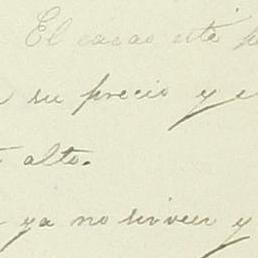 El cacao está
su precio y
alto.
ya no sirven y